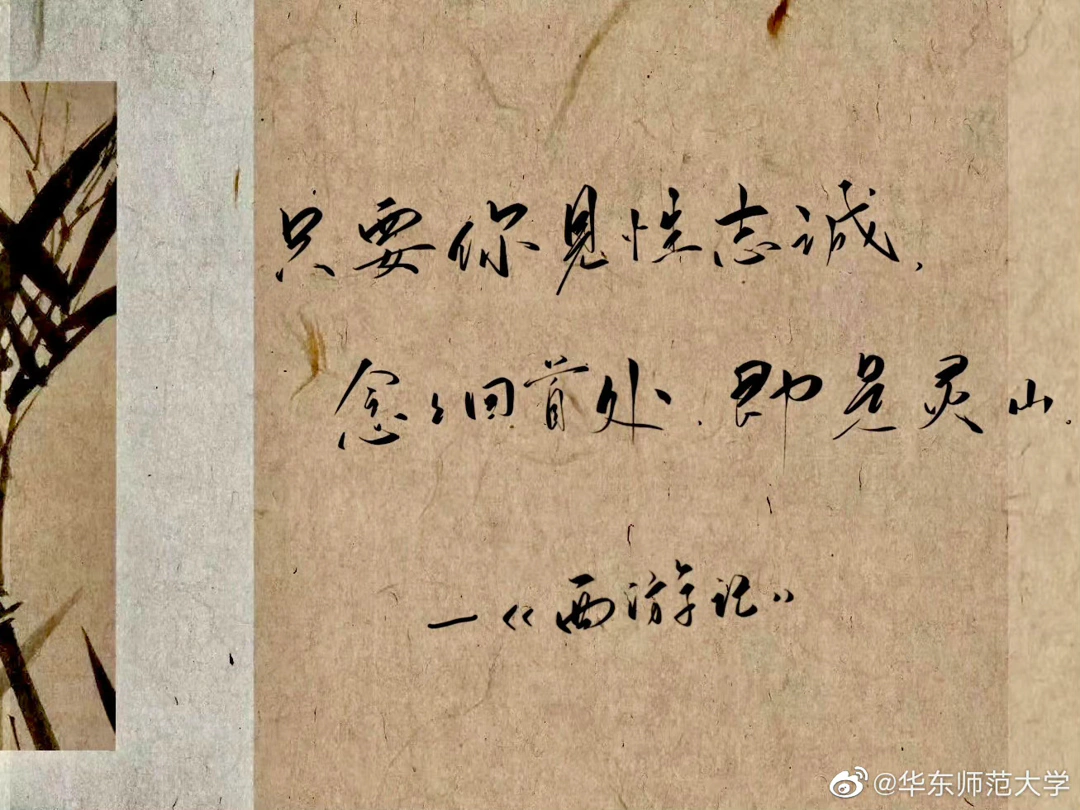 只要你见性志诚，
念念回首处，即是灵山。
—《西游记》
@华东师范大学